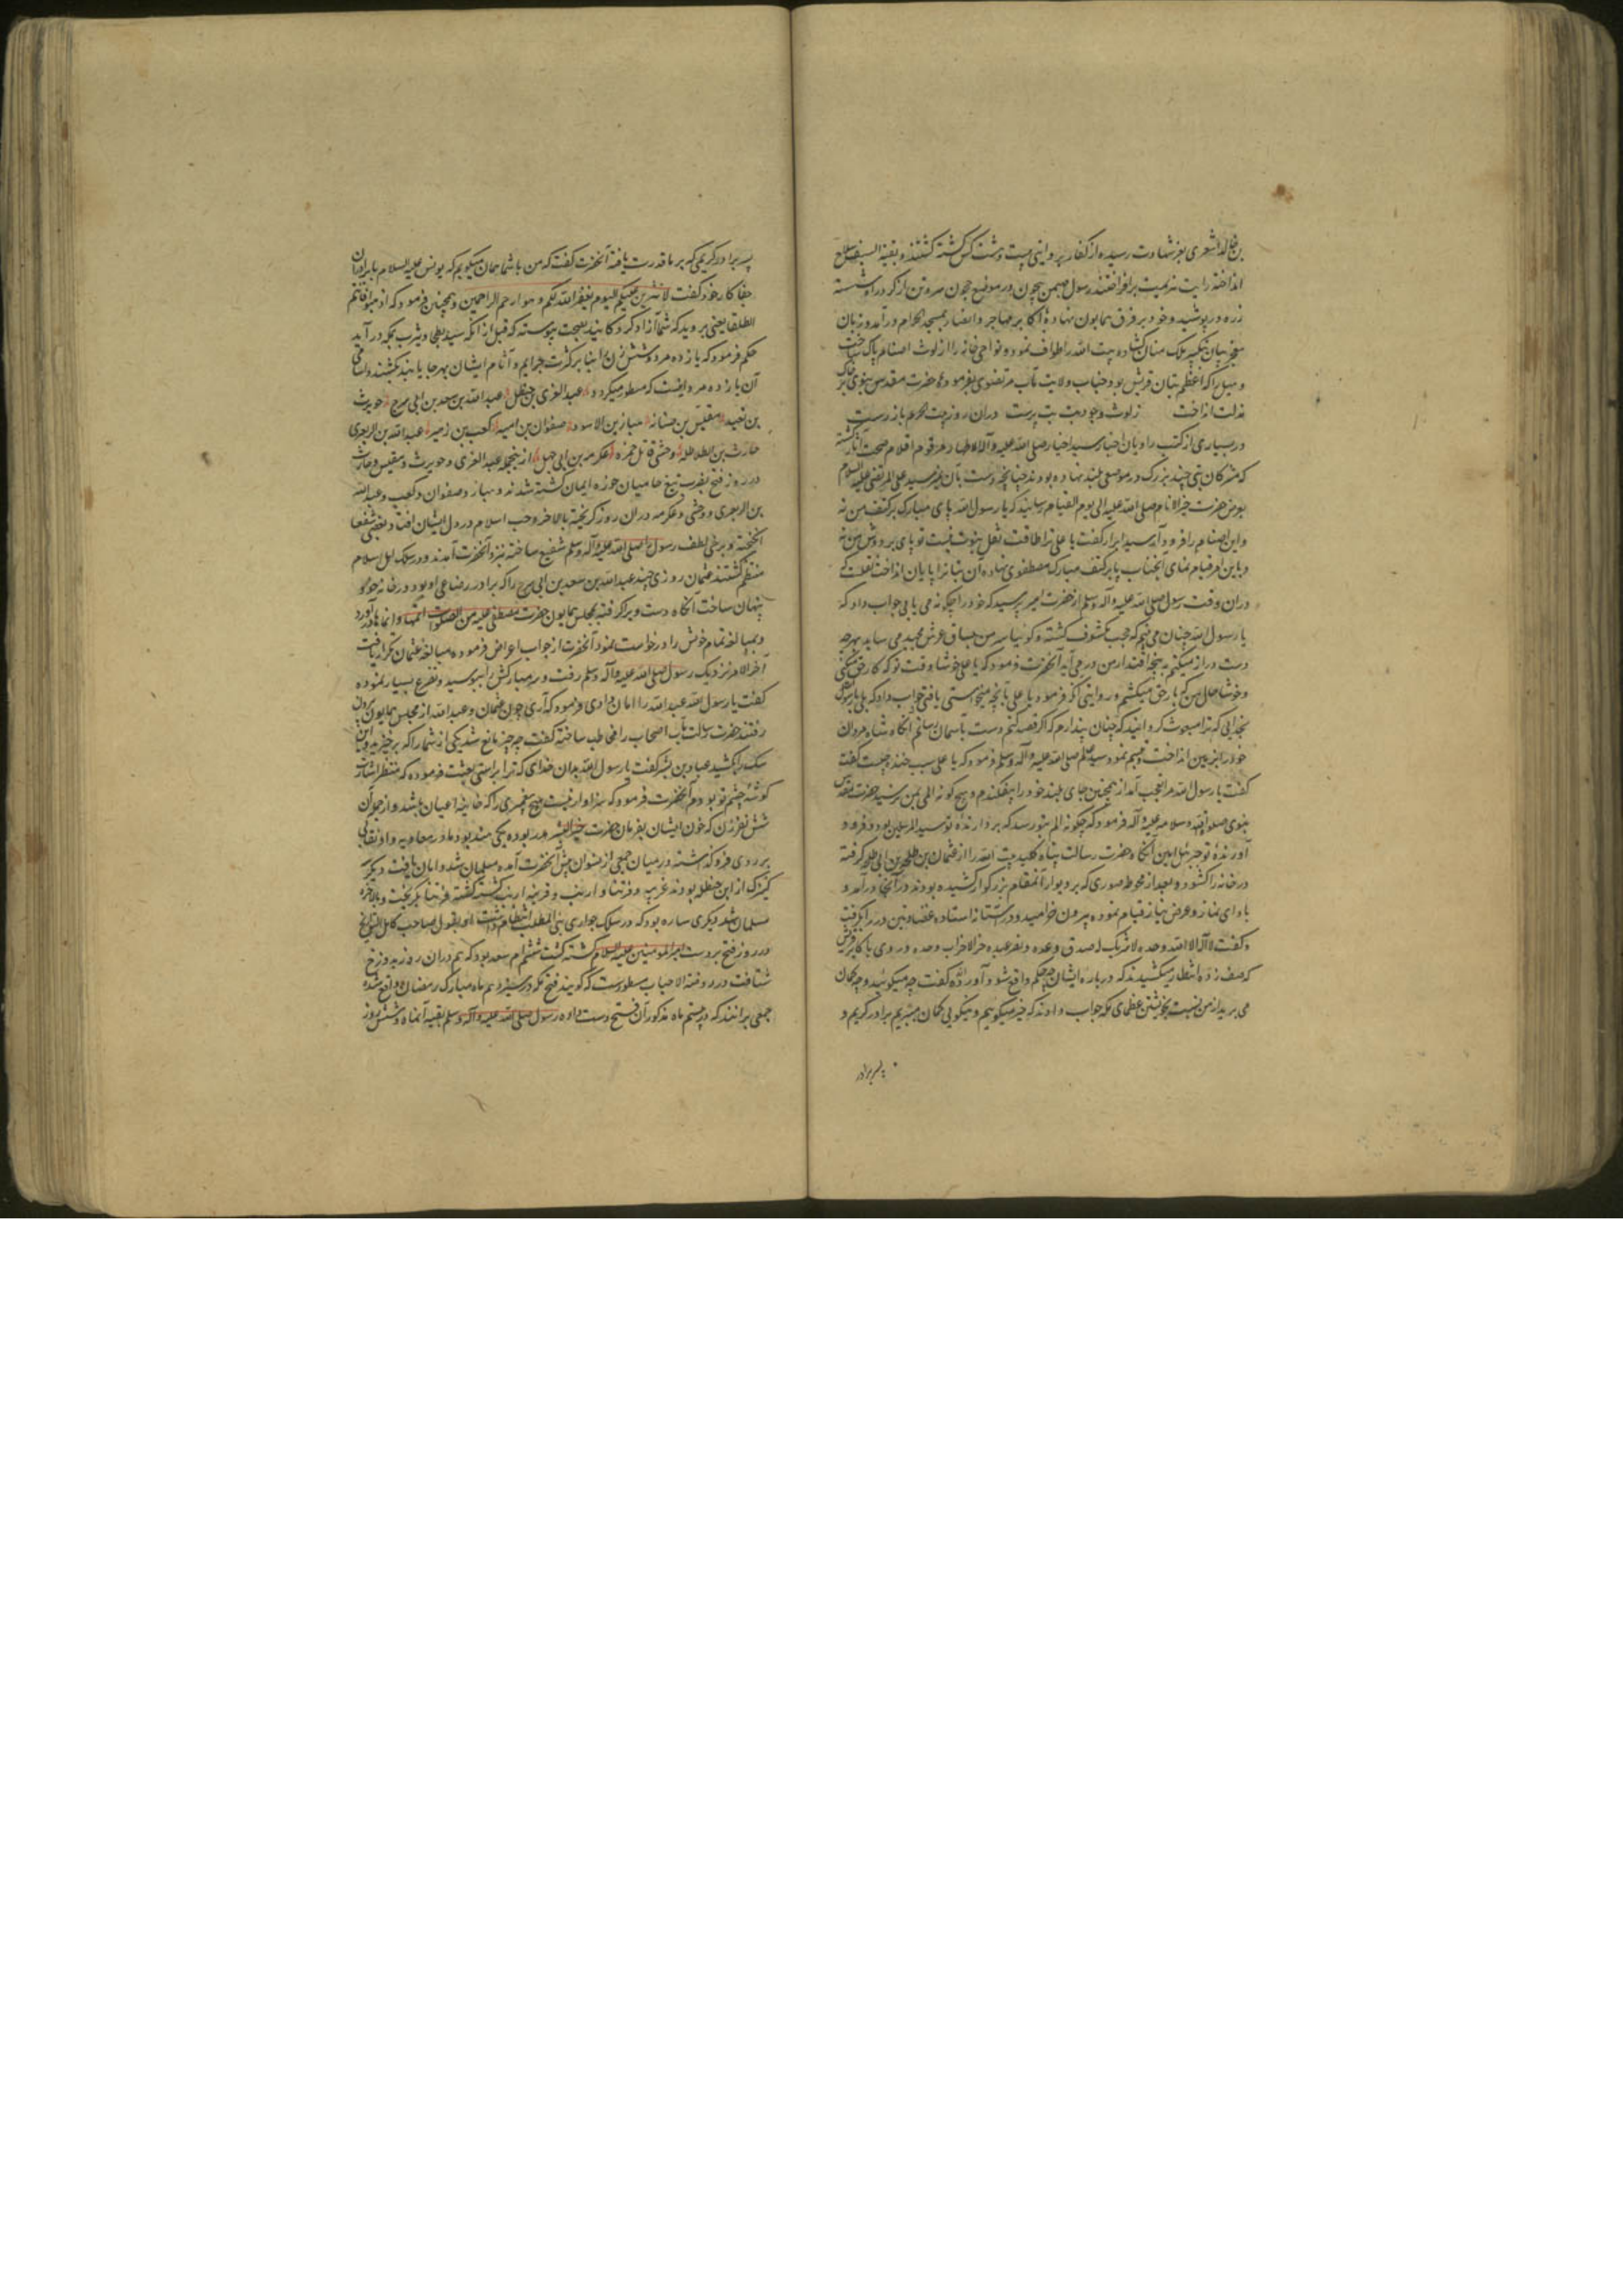 بن خالد اشعری بعز شهادت رسیده از کفار بروایتی بیست و هشت کس کشته کشتند و بقیة السیف سلاح
انداخته رایت هزیمت برافراختند رسول مهیمن بیچون در موضع حجون سر و تن از کرد راه شسته
زره در پوشید و خود بر فرق همایون نهاده با اکابر مهاجر و انصار بمسجد الحرام درآمد و زبان
معجز بیان بتکبیر ملک منان کشاده بیت الله را طواف نمود و نواحی خانه را از لوث اصنام پاک ساخت
و هبل را که اعظم بتان قریش بود جناب ولایت مآب مرتضوی بفرموده حضرت مقدس نبوی بر خاک
مذلت انداخت ز لوث وجود بت بت پرست دران روز بیت الحرم باز رست
در بسیاری از کتب راویان اخبار سید اخیار صلی الله علیه و آله الاطهار مرقوم اقلام صحت آثار کشته
که مشرکان بتی چند بزرک در موضعی بلند نهاده بودند چنانچه دست بآن نمیرسید علی المرتضی علیه السلام
بعرض حضرت خیر الانام صلی الله علیه الی یوم القیام رسانید که یا رسول الله پای مبارک بر کتف من نه
و این اصنام را فرود آر سید ابرار کفت یا علی ترا طاقت ثقل نبوت نیست تو پای بر دوش من نه
و باین امر قیام نمای آنجناب پا بر کتف مبارک مصطفوی نهاده آن بتانرا پایان انداخت نقلست که
دران وقت رسول صلی الله علیه و آله و سلم از حضرت امیر پرسید که خود را چکونه می یابی جواب داد که
یا رسول الله چنان می بینم که حجب مکشوف کشته و کوئیا سر من بساق عرش مجید می ساید بهرچه
دست دراز میکنم به پنجه اقتدار من درمی آید آنحضرت فرمود که یا علی خوشا وقت تو که کار حق میکنی
و خوشا حال من که بار حق میکشم و روایتی آنکه فرمود یا علی بآنچه میخواستی یافتی جواب داد که بلی یا رسول الله
بخدایی که ترا مبعوث کردانید که چنان پندارم که اکر قصد کنم دست بآسمان رسانم آنکاه شاه مردان
خود را بزمین انداخت و تبسم نمود سید عالم صلی الله علیه و آله و سلم فرمود که یا علی سبب خنده چیست کفت
کفت یا رسول الله مرا عجب آمد از همچنین جای بلند خود را بیفکندم و هیچ کونه المی بمن نرسید حضرت مقدس
نبوی صلوات الله و سلامه علیه و آله فرمود که چکونه الم بتو رسد که بردارنده تو سید المرسلین بود و فرود
آورنده تو جبرئیل امین آنکاه حضرت رسالت پناه کلید بیت الله را از عثمان بن طلحه بن ابی طلحه کرفته
در خانه را کشود و بعد از محو صوری که بر دیوار آنمقام بزرکوار کشیده بودند در آنجا درآمد و
بادای نماز و عرض نیاز قیام نموده بیرون خرامید و در آستانه استاده عضادتین در را بکرفت
و کفت لا اله الا الله وحده لا شریک له صدق وعده و نصر عبده و هزم الاحزاب وحده و روی باکابر قریش
که صف زده انتظار میکشیدند که درباره ایشان چه حکم واقع شود آورده کفت چه میکوئید و چه کمان
می برید از من نسبت بخویشتن عظمای مکه جواب دادند که خیر میکوییم و نیکویی کمان میبریم برادر کریم و
پسر برادر
پسر برادر کریمی که بر ما قدرت یافته آنحضرت کفت که من با شما همان میکویم که یوسف علیه السلام با برادران
جفا کار خود کفت لا تثریب علیکم الیوم یغفر الله لکم و هو ارحم الراحمین و همچنین فرمود که اذهبوا فانتم
الطلقا یعنی بروید که شما آزاد کردکانید بصحت پیوسته که قبل از آنکه سید بطحی و یثرب بمکه درآید
حکم فرمود که یازده مرد و شش زن را بنا بر کثرت جرایم و آثام ایشان بهر جا یابند بکشند و اسامی
آن یازده مرد اینست که مسطور میکردد عبد العزی بن حنظل عبد الله بن سعد بن ابی سرح حویرث
بن نقید مقیس بن صبانه هبار بن الاسود صفوان بن امیه کعب بن زهیر عبد الله بن الزبعری
حارث بن الطلاطله وحشی قاتل حمزه عکرمه بن ابی جهل از اینجمله عبد العزی و حویرث و مقیس و حارث
در روز فتح بضرب تیغ حامیان حوزه ایمان کشته شدند و هبار و صفوان و کعب و عبد الله
بن الزبعری و وحشی و عکرمه دران روز کریخته بالاخره حب اسلام در دل ایشان افتاد و بعضی شفعا
انکیخته و برخی لطف رسول را صلی الله علیه و آله و سلم شفیع ساخته نزد آنحضرت آمدند و در سلک اهل اسلام
منتظم کشتند عثمان روزی چند عبد الله بن سعد بن ابی سرح را که برادر رضاعی او بود در خانه خود
پنهان ساخت آنکاه دست ویرا کرفته بمجلس همایون حضرت مصطفی علیه من الصلوات اتمها و انماها درآورد
و بمبالغه تمام خونش را درخواست نمود آنحضرت از جواب اعراض فرموده مبالغه عثمان تکرار یافت
آخر الامر نزدیک رسول صلی الله علیه و آله و سلم رفت و سر مبارکش را ببوسید و تضرع بسیار نموده
کفت یا رسول الله عبد الله را امان دادی فرمود که آری چون عثمان و عبد الله از مجلس همایون بیرون
رفتند حضرت رسالت مآب اصحاب را مخاطب ساخته کفت چه چیز مانع شد یکی از شما را که برخیزد و این
سک را بکشد عباد بن بشر کفت یا رسول الله بدان خدای که ترا براستی بعثت فرموده که منتظر اشارت
کوشه چشم تو بودم آنحضرت فرمود که سزاوار نیست هیچ پیغمبری را که خاینة اعیان باشد و از جمله آن
شش نفر زن که خون ایشان بفرمان حضرت خیر البشر هدر بوده یکی هند بود مادر معاویه و او نقابی
بر روی فرو کذاشته در میان جمعی از نسوان پیش آنحضرت آمده مسلمان شد و امان یافت و دیکر سه
کنیزک از ابن حنظل بودند غریبه و فرتنا و ارنب و قریبه ارنب کشته کشته فرتنا بکریخت و بالاخره
مسلمان شد دیکری ساره بود که در سلک جواری بنی المطلب انتظام داشت او بقول صاحب کامل التواریخ
در روز فتح بر دست امیر المومنین علیه السلام کشته کشت ششم ام سعد بود که هم دران روز بدوزخ
شتافت در روضة الاحباب مسطورست که کویند فتح مکه در سیزدهم ماه مبارک رمضان واقع شده
جمعی برانند که در بیستم ماه مذکور آن فتح دست داده رسول صلی الله علیه و آله و سلم بقیه آنماه و شش روز